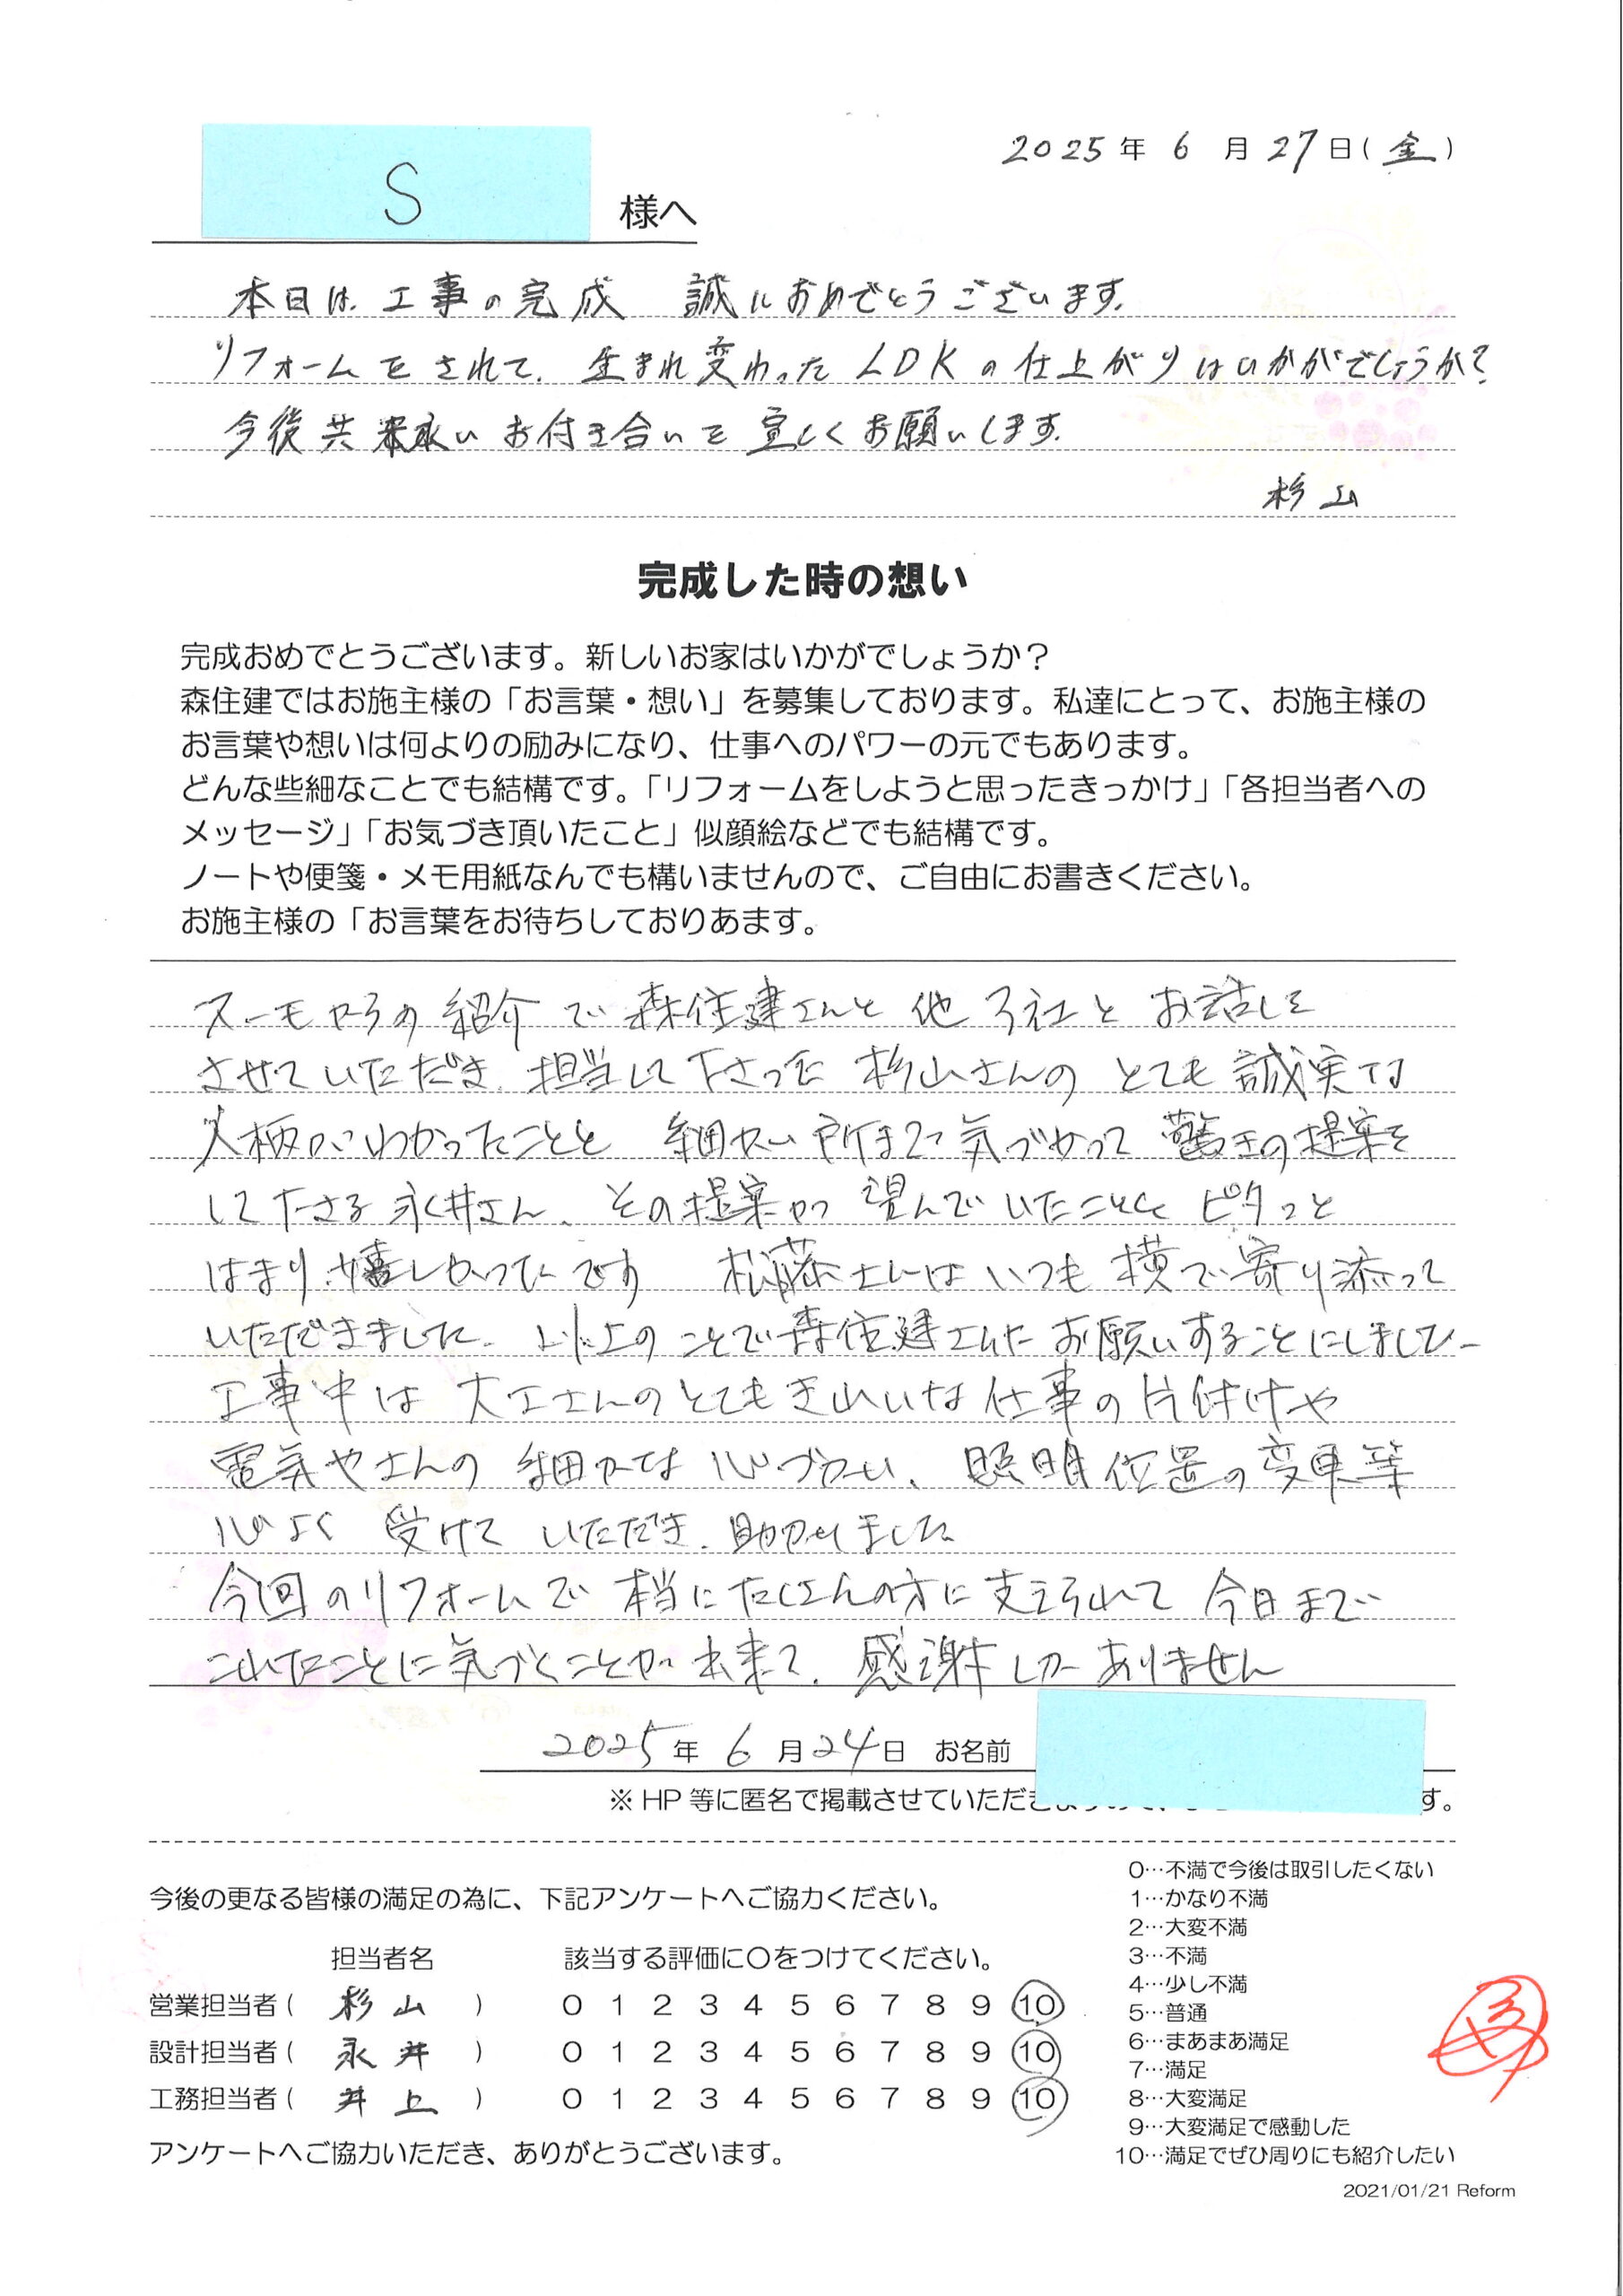 2025年 6 月 27日(金)
S 様へ
本日は、工事の完成 誠におめでとうございます。
リフォームをされて、生まれ変わったLDKの仕上がりはいかがでしょうか?
今後共末永いお付き合いを宜しくお願いします。
杉山
完成した時の想い
完成おめでとうございます。新しいお家はいかがでしょうか?
森住建ではお施主様の「お言葉・想い」を募集しております。私達にとって、お施主様の
お言葉や想いは何よりの励みになり、仕事へのパワーの元でもあります。
どんな些細なことでも結構です。「リフォームをしようと思ったきっかけ」「各担当者への
メッセージ」「お気づき頂いたこと」似顔絵などでも結構です。
ノートや便箋・メモ用紙なんでも構いませんので、ご自由にお書きください。
お施主様の「お言葉をお待ちしておりあます。
スーモからの紹介で森住建さんと他3社とお話しを
させていただき、担当して下さった杉山さんのとても誠実な
人柄がわかったことと 細かい所まで気づかって驚きの提案を
して下さる永井さん、その提案が望んでいたことにピタっと
はまり、嬉しかったです 松藤さんはいつも横で寄り添って
いただきました。以上のことで森住建さんにお願いすることにしました。
工事中は大工さんのとてもきれいな仕事の片付けや
電気やさんの細かな心づかい、照明位置の変更等
心よく受けていただき、助かりました
今回のリフォームで本当にたくさんの方に支えられて今日まで
これたことに気づくことが出来て、感謝しかありません
2025年 6 月24日 お名前
※HP等に匿名で掲載させていただき す。
今後の更なる皆様の満足の為に、下記アンケートへご協力ください。
担当者名 該当する評価に〇をつけてください。
営業担当者( 杉山 ) 0 1 2 3 4 5 6 7 8 9 10
設計担当者( 永井 ) 0 1 2 3 4 5 6 7 8 9 10
工務担当者( 井上 ) 0 1 2 3 4 5 6 7 8 9 10
アンケートへご協力いただき、ありがとうございます。
0…不満で今後は取引したくない
1…かなり不満
2…大変不満
3…不満
4…少し不満
5…普通
6…まあまあ満足
7…満足
8…大変満足
9…大変満足で感動した
10…満足でぜひ周りにも紹介したい
2021/01/21 Reform